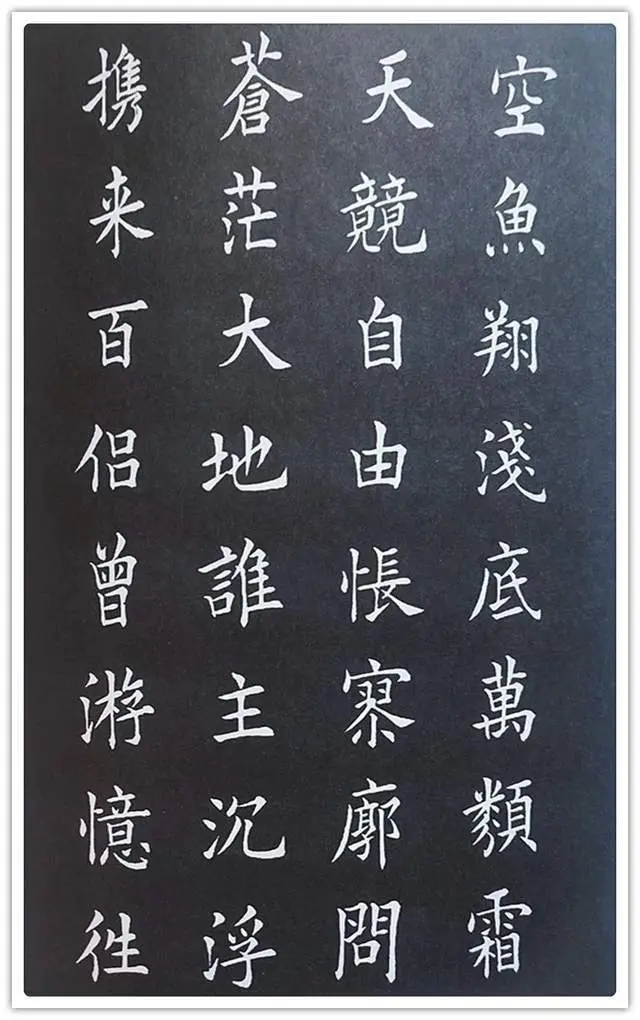 空魚翔淺底萬類霜
天競自由悵寥廓問
蒼茫大地誰主沉浮
携来百侣曾游憶徃